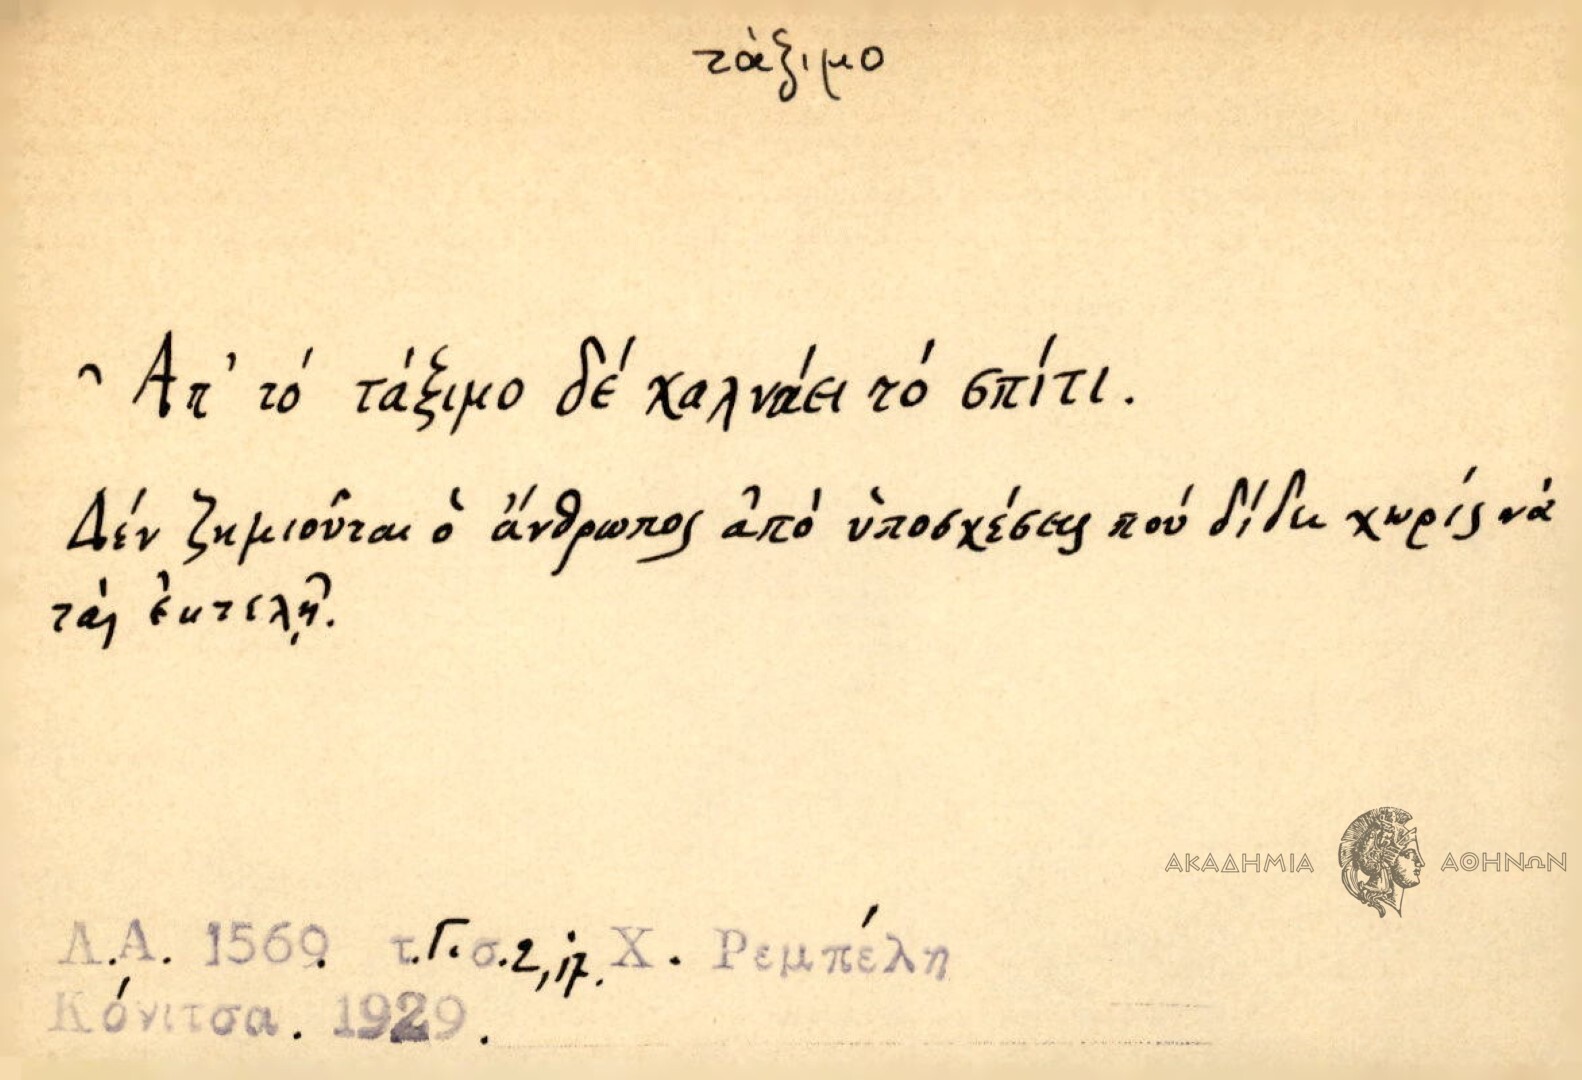 τάξιμο
Ἀπ' τό τάξιμο δέ χαλνάει τό σπίτι.
Δέν ζημιοῦται ὁ ἄνθρωπος ἀπό ὑποσχέσεις πού δίδει χωρίς νά
τάς ἐκτελῇ.
ΑΚΑΔΗΜΙΑ ΑΘΗΝΩΝ
Λ.Α. 1569. τ.Γ. σ.2, Χ. Ρεμπέλη
Κόνιτσα. 1929.